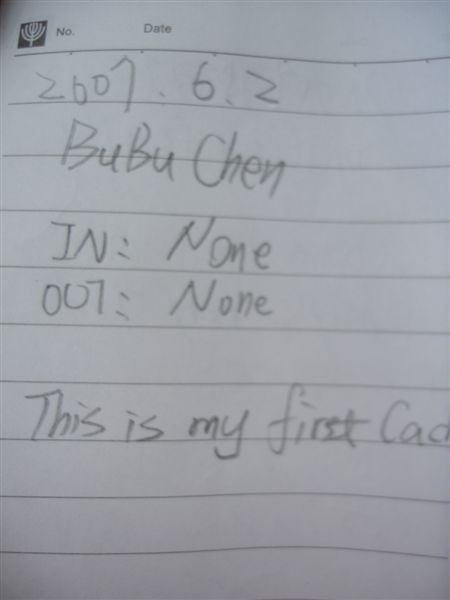 No. Date
2007.6.2
BuBu Chen
IN: None
OUT: None
This is my first Cac